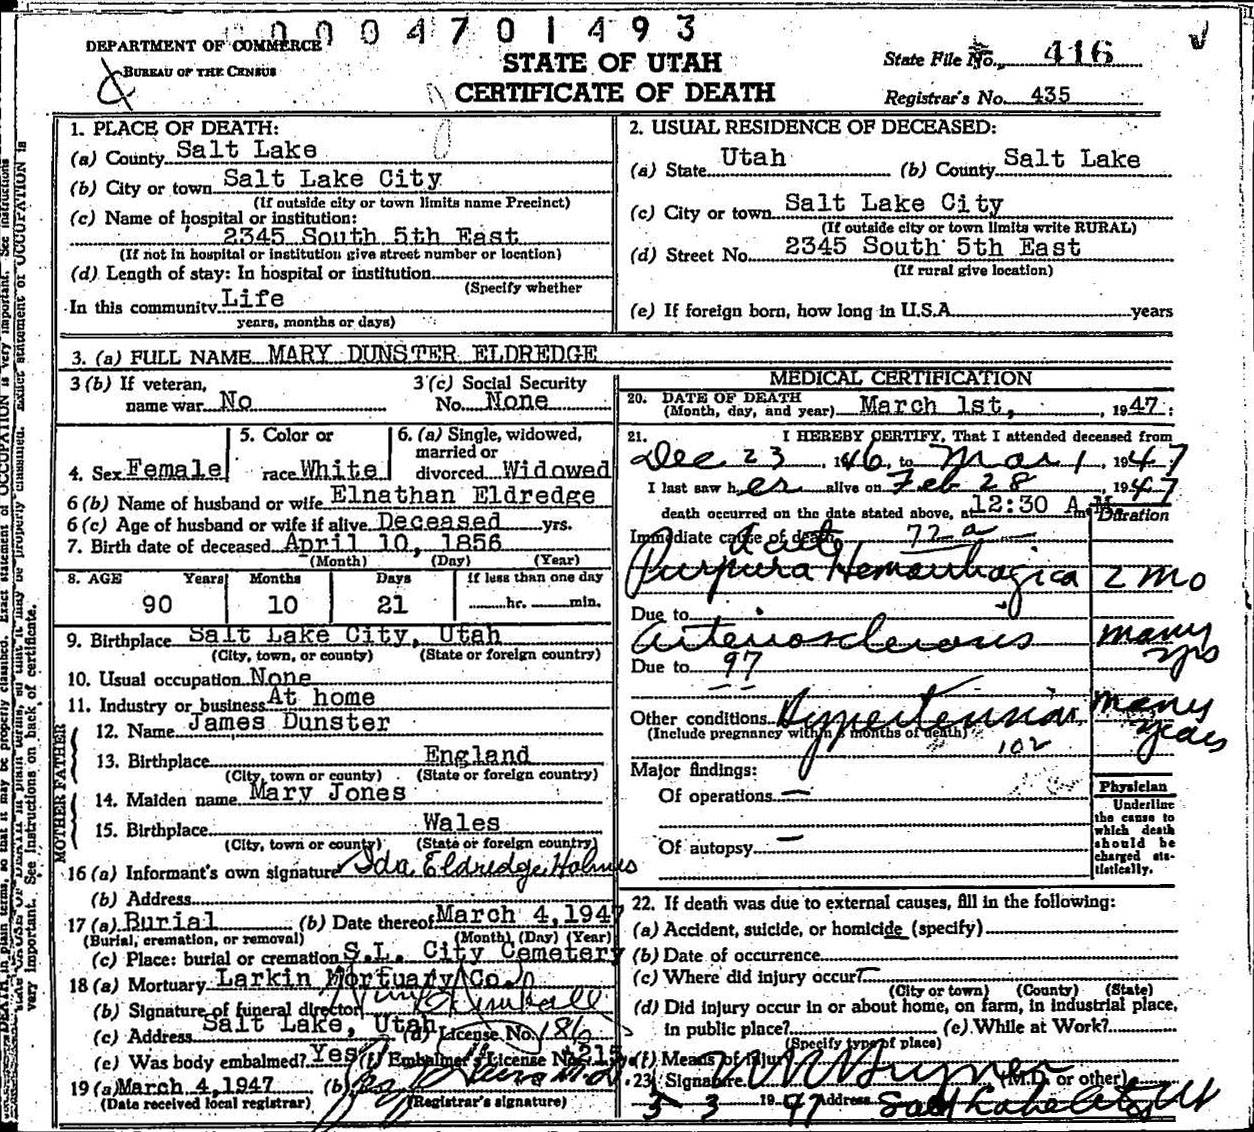 0004701493
DEPARTMENT OF COMMERCE
BUREAU OF THE CENSUS
STATE OF UTAH
CERTIFICATE OF DEATH
State File No. 416
Registrar's No. 435
1. PLACE OF DEATH:
(a) County Salt Lake
(b) City or town Salt Lake City
(If outside city or town limits name Precinct)
(c) Name of hospital or institution:
2345 South 5th East
(If not in hospital or institution give street number or location)
(d) Length of stay: In hospital or institution
(Specify whether
In this community Life
years, months or days)
2. USUAL RESIDENCE OF DECEASED:
(a) State Utah (b) County Salt Lake
(c) City or town Salt Lake City
(If outside city or town limits write RURAL)
(d) Street No. 2345 South 5th East
(If rural give location)
(e) If foreign born, how long in U.S.A. years
3. (a) FULL NAME MARY DUNSTER ELDREDGE
3 (b) If veteran, name war No
3 (c) Social Security No. None
4. Sex Female
5. Color or race White
6. (a) Single, widowed, married or divorced Widowed
6 (b) Name of husband or wife Elnathan Eldredge
6 (c) Age of husband or wife if alive Deceased yrs.
7. Birth date of deceased April 10, 1856
(Month) (Day) (Year)
8. AGE Years Months Days If less than one day
90 10 21 hr. min.
9. Birthplace Salt Lake City, Utah
(City, town, or county) (State or foreign country)
10. Usual occupation None
11. Industry or business At home
FATHER
12. Name James Dunster
13. Birthplace England
(City, town or county) (State or foreign country)
MOTHER
14. Maiden name Mary Jones
15. Birthplace Wales
(City, town or county) (State or foreign country)
16 (a) Informant's own signature Ida Eldredge Holmes
(b) Address
17 (a) Burial (b) Date thereof March 4, 1947
(Burial, cremation, or removal) (Month) (Day) (Year)
(c) Place: burial or cremation S.L. City Cemetery
18 (a) Mortuary Larkin Mortuary Co.
(b) Signature of funeral director
(c) Address Salt Lake, Utah (d) License No. 186
(e) Was body embalmed? Yes (f) Embalmer's License No. 215
19 (a) March 4, 1947 (b)
(Date received local registrar) (Registrar's signature)
MEDICAL CERTIFICATION
20. DATE OF DEATH
(Month, day, and year) March 1st, , 1947
21. I HEREBY CERTIFY, That I attended deceased from
Dec 23, 1946, to Mar 1, 1947
I last saw her alive on Feb 28, 1947
death occurred on the date stated above, at 12:30 A.M.
Duration
Immediate cause of death 72 a
Acute
Purpura Hemorrhagica 2 mo
Due to
arteriosclerosis many yrs
Due to 97
Other conditions Hypertension many years
(Include pregnancy within 3 months of death)
102
Major findings:
Of operations —
Of autopsy —
Physician
Underline
the cause to
which death
should be
charged sta-
tistically.
22. If death was due to external causes, fill in the following:
(a) Accident, suicide, or homicide (specify)
(b) Date of occurrence
(c) Where did injury occur?
(City or town) (County) (State)
(d) Did injury occur in or about home, on farm, in industrial place,
in public place? (e) While at Work?
(Specify type of place)
(f) Means of injury
23. Signature (M.D. or other)
3 3 1947 Address Salt Lake City Ut